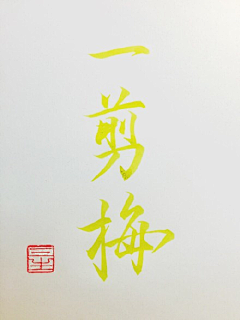 一剪梅